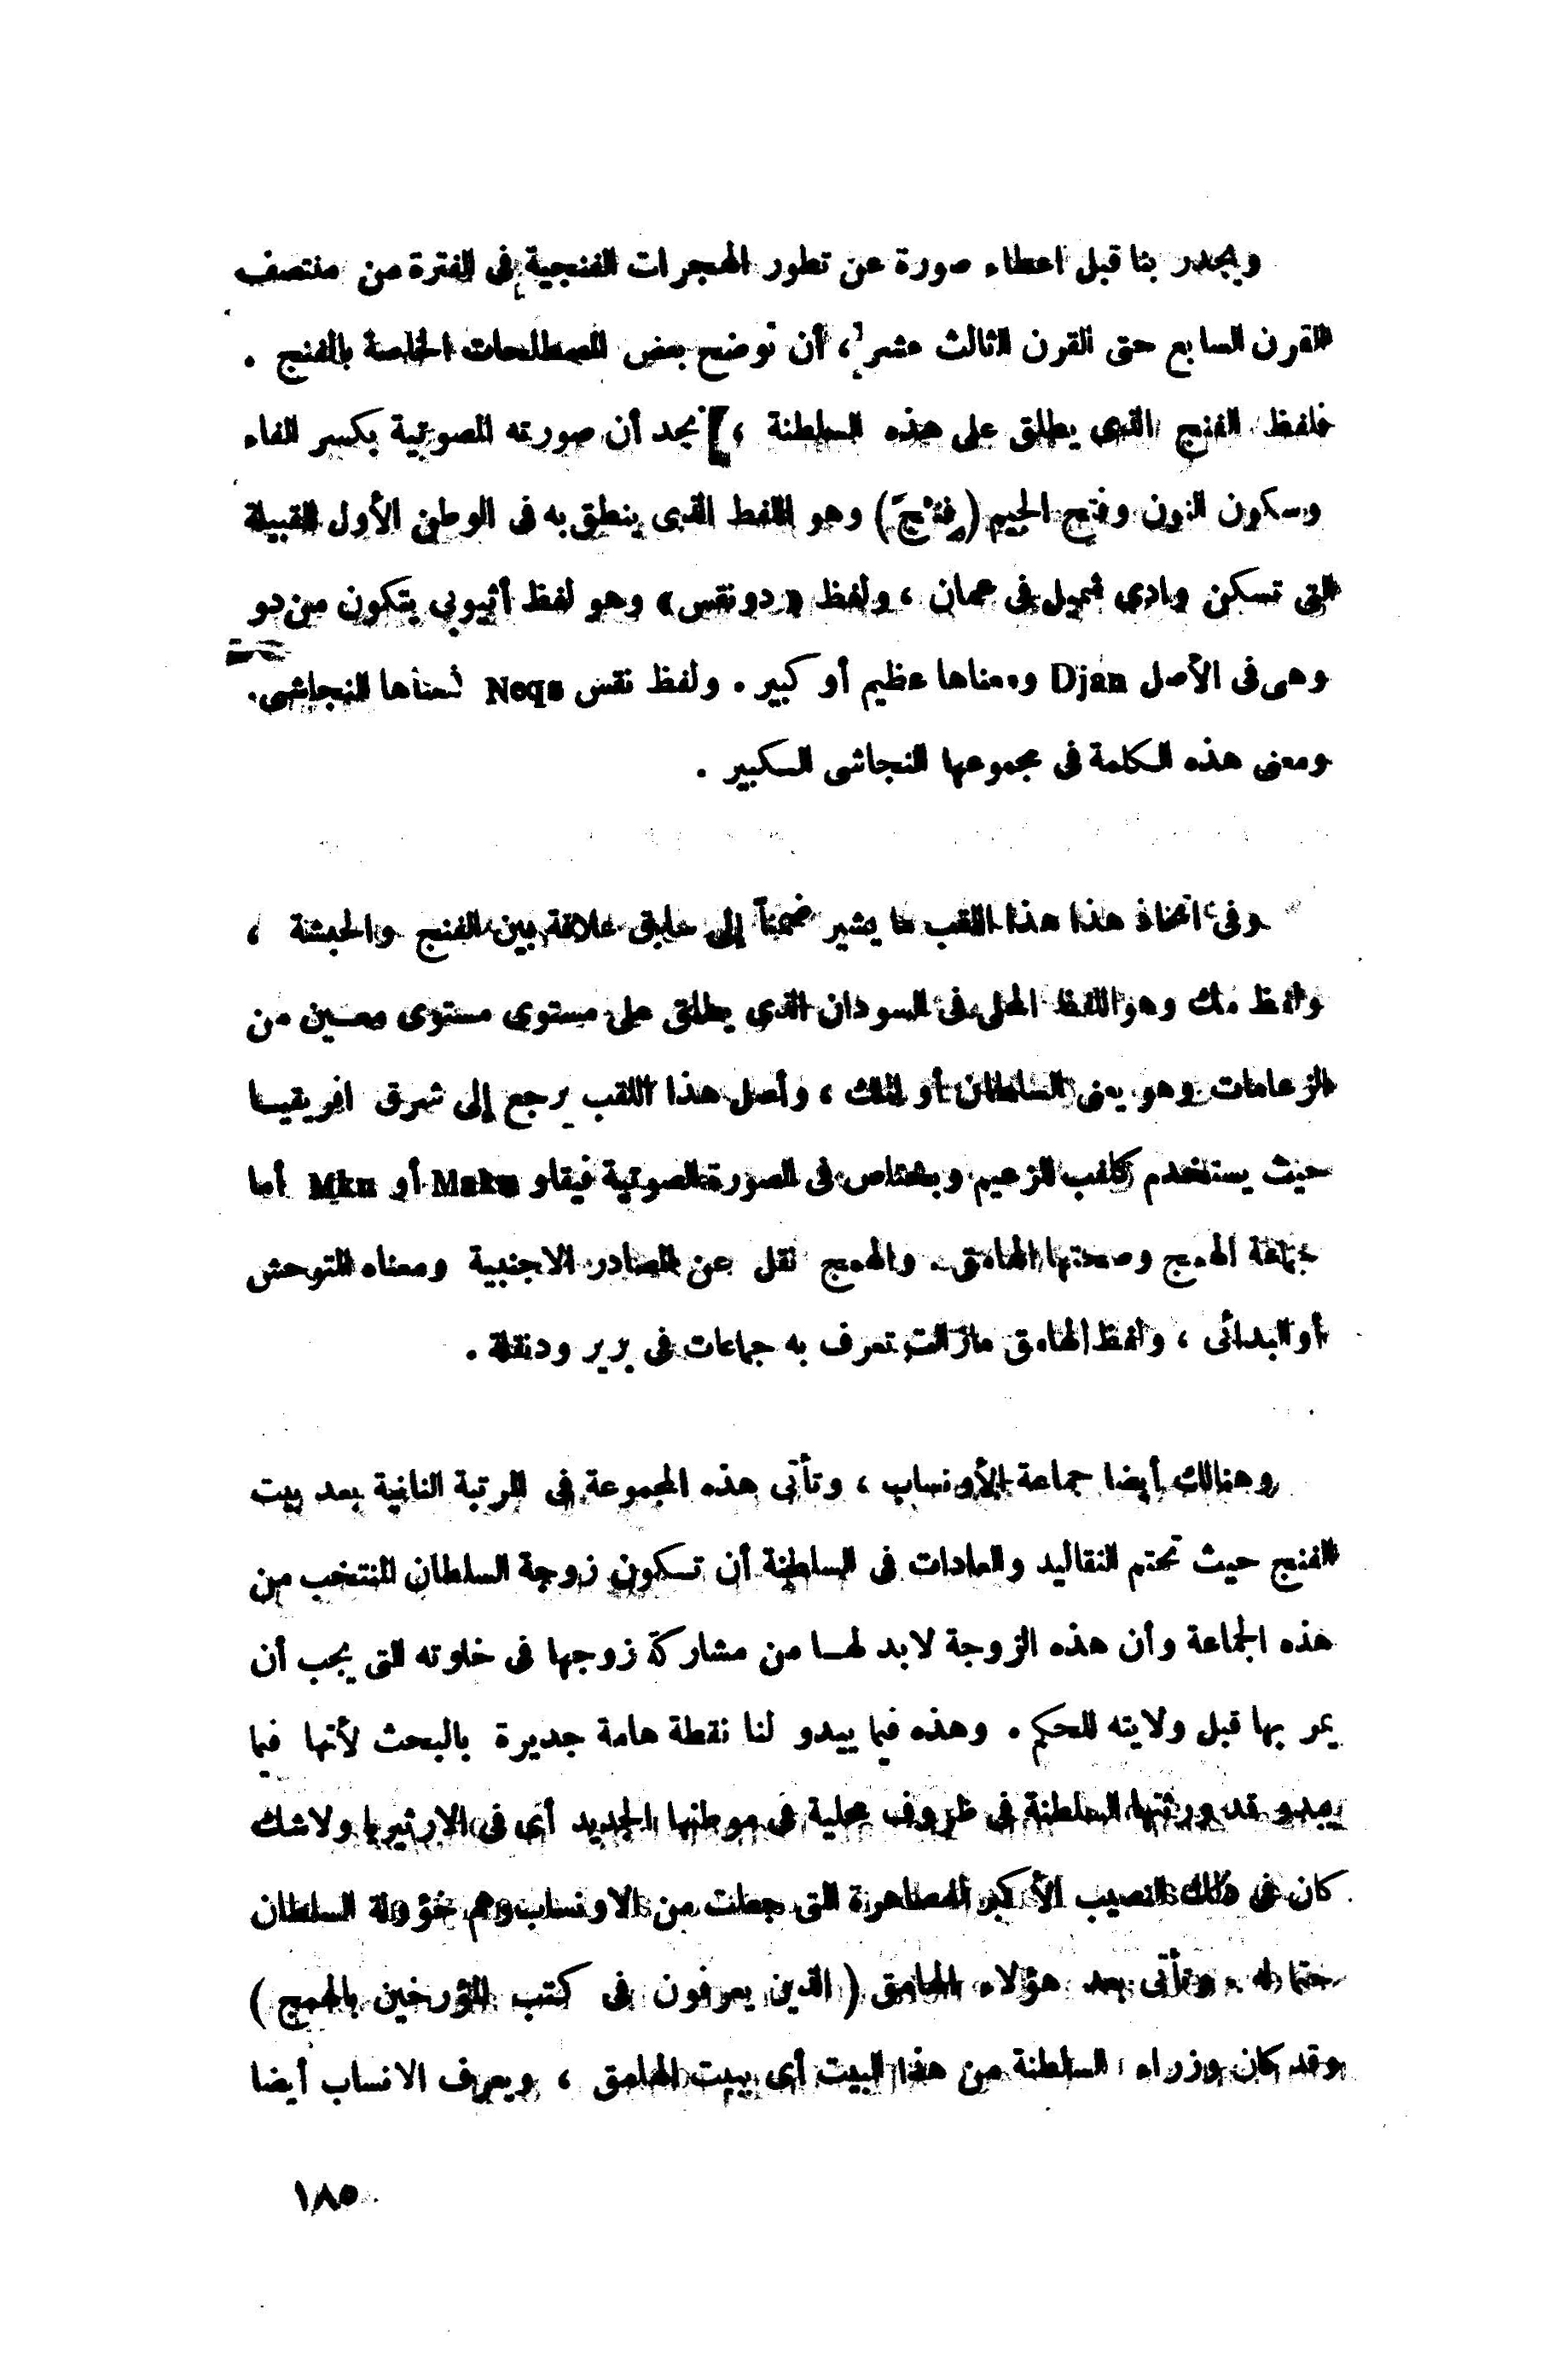 ويجدر بنا قبل اعطاء صورة عن تطور الهجرات الفنجية فى الفترة من منتصف
القرن السابع حتى القرن الثالث عشر ، أن نوضح بعض المصطلحات الخاصة بالفنج .
فلفظ الفنج الذى يطلق على هذه السلطنة ، نجد أن صورته الصوتية بكسر الفاء
وسكون النون وفتح الجيم ( فِنْجَ ) وهو اللفظ الذى ينطق به فى الوطن الأول للقبيلة
التى تسكن وادى شميل فى عمان ، ولفظ « دونقس » وهو لفظ أثيوبى يتكون من دو
وهى فى الأصل Djan ومعناها عظيم أو كبير . ولفظ نقس Neqs فمعناها النجاشى.
ومعنى هذه الكلمة فى مجموعها النجاشى الكبير .
وفى اتخاذ هذا هذا اللقب ما يشير ضمناً إلى علاقة بين الفنج والحبشة ،
ولفظ مك وهو اللفظ المحلى فى السودان الذى يطلق على مستوى مستوى معين من
الزعامات وهو يعنى السلطان أو الملك ، وأصل هذا اللقب يرجع إلى شرق افريقيا
حيث يستخدم كلقب للزعيم فى الصورة الصوتية فيقاو Maku أو Mku أما
جماعة الهمج وصحتها الهامق . والهمج نقل عن المصادر الاجنبية ومعناه المتوحش
أو البدائى ، ولفظ الهامق مازالت تعرف به جماعات فى بربر ودنقلة .
وهنالك أيضا جماعة الأونساب ، وتأتى هذه المجموعة فى المرتبة الثانية بعد بيت
الفنج حيث تحتم التقاليد والعادات فى السلطنة أن تكون زوجة السلطان المنتخب من
هذه الجماعة وأن هذه الزوجة لابد لها من مشاركة زوجها فى خلوته التى يجب أن
يمر بها قبل ولايته للحكم . وهذه فيما يبدو لنا نقطة هامة جديرة بالبحث لأنها فيما
يبدو قد ورثتها السلطنة فى ظروف محلية فى موطنها الجديد أى فى الارثيريا ولاشك
كان فى ذلك النصيب الأكبر للمصاهرة التى جعلت من الاونساب وهم خؤولة السلطان
حتما له . وتأتى بعد هؤلاء الهامق ( الذين يعرفون فى كتب المؤرخين بالهمج )
وقد كان وزراء السلطنة من هذا البيت أى بيت الهامق ، ويعرف الانساب أيضا
١٨٥